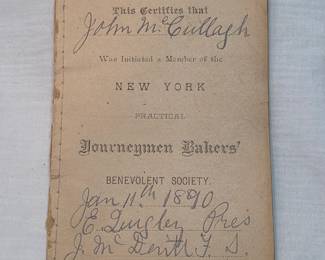 This Certifies that
John McCullagh
Was Initiated a Member of the
NEW YORK
PRACTICAL
Journeymen Bakers'
BENEVOLENT SOCIETY.
Jan 11th 1890
E. Quigley Pres
J. McDevitt F. S.